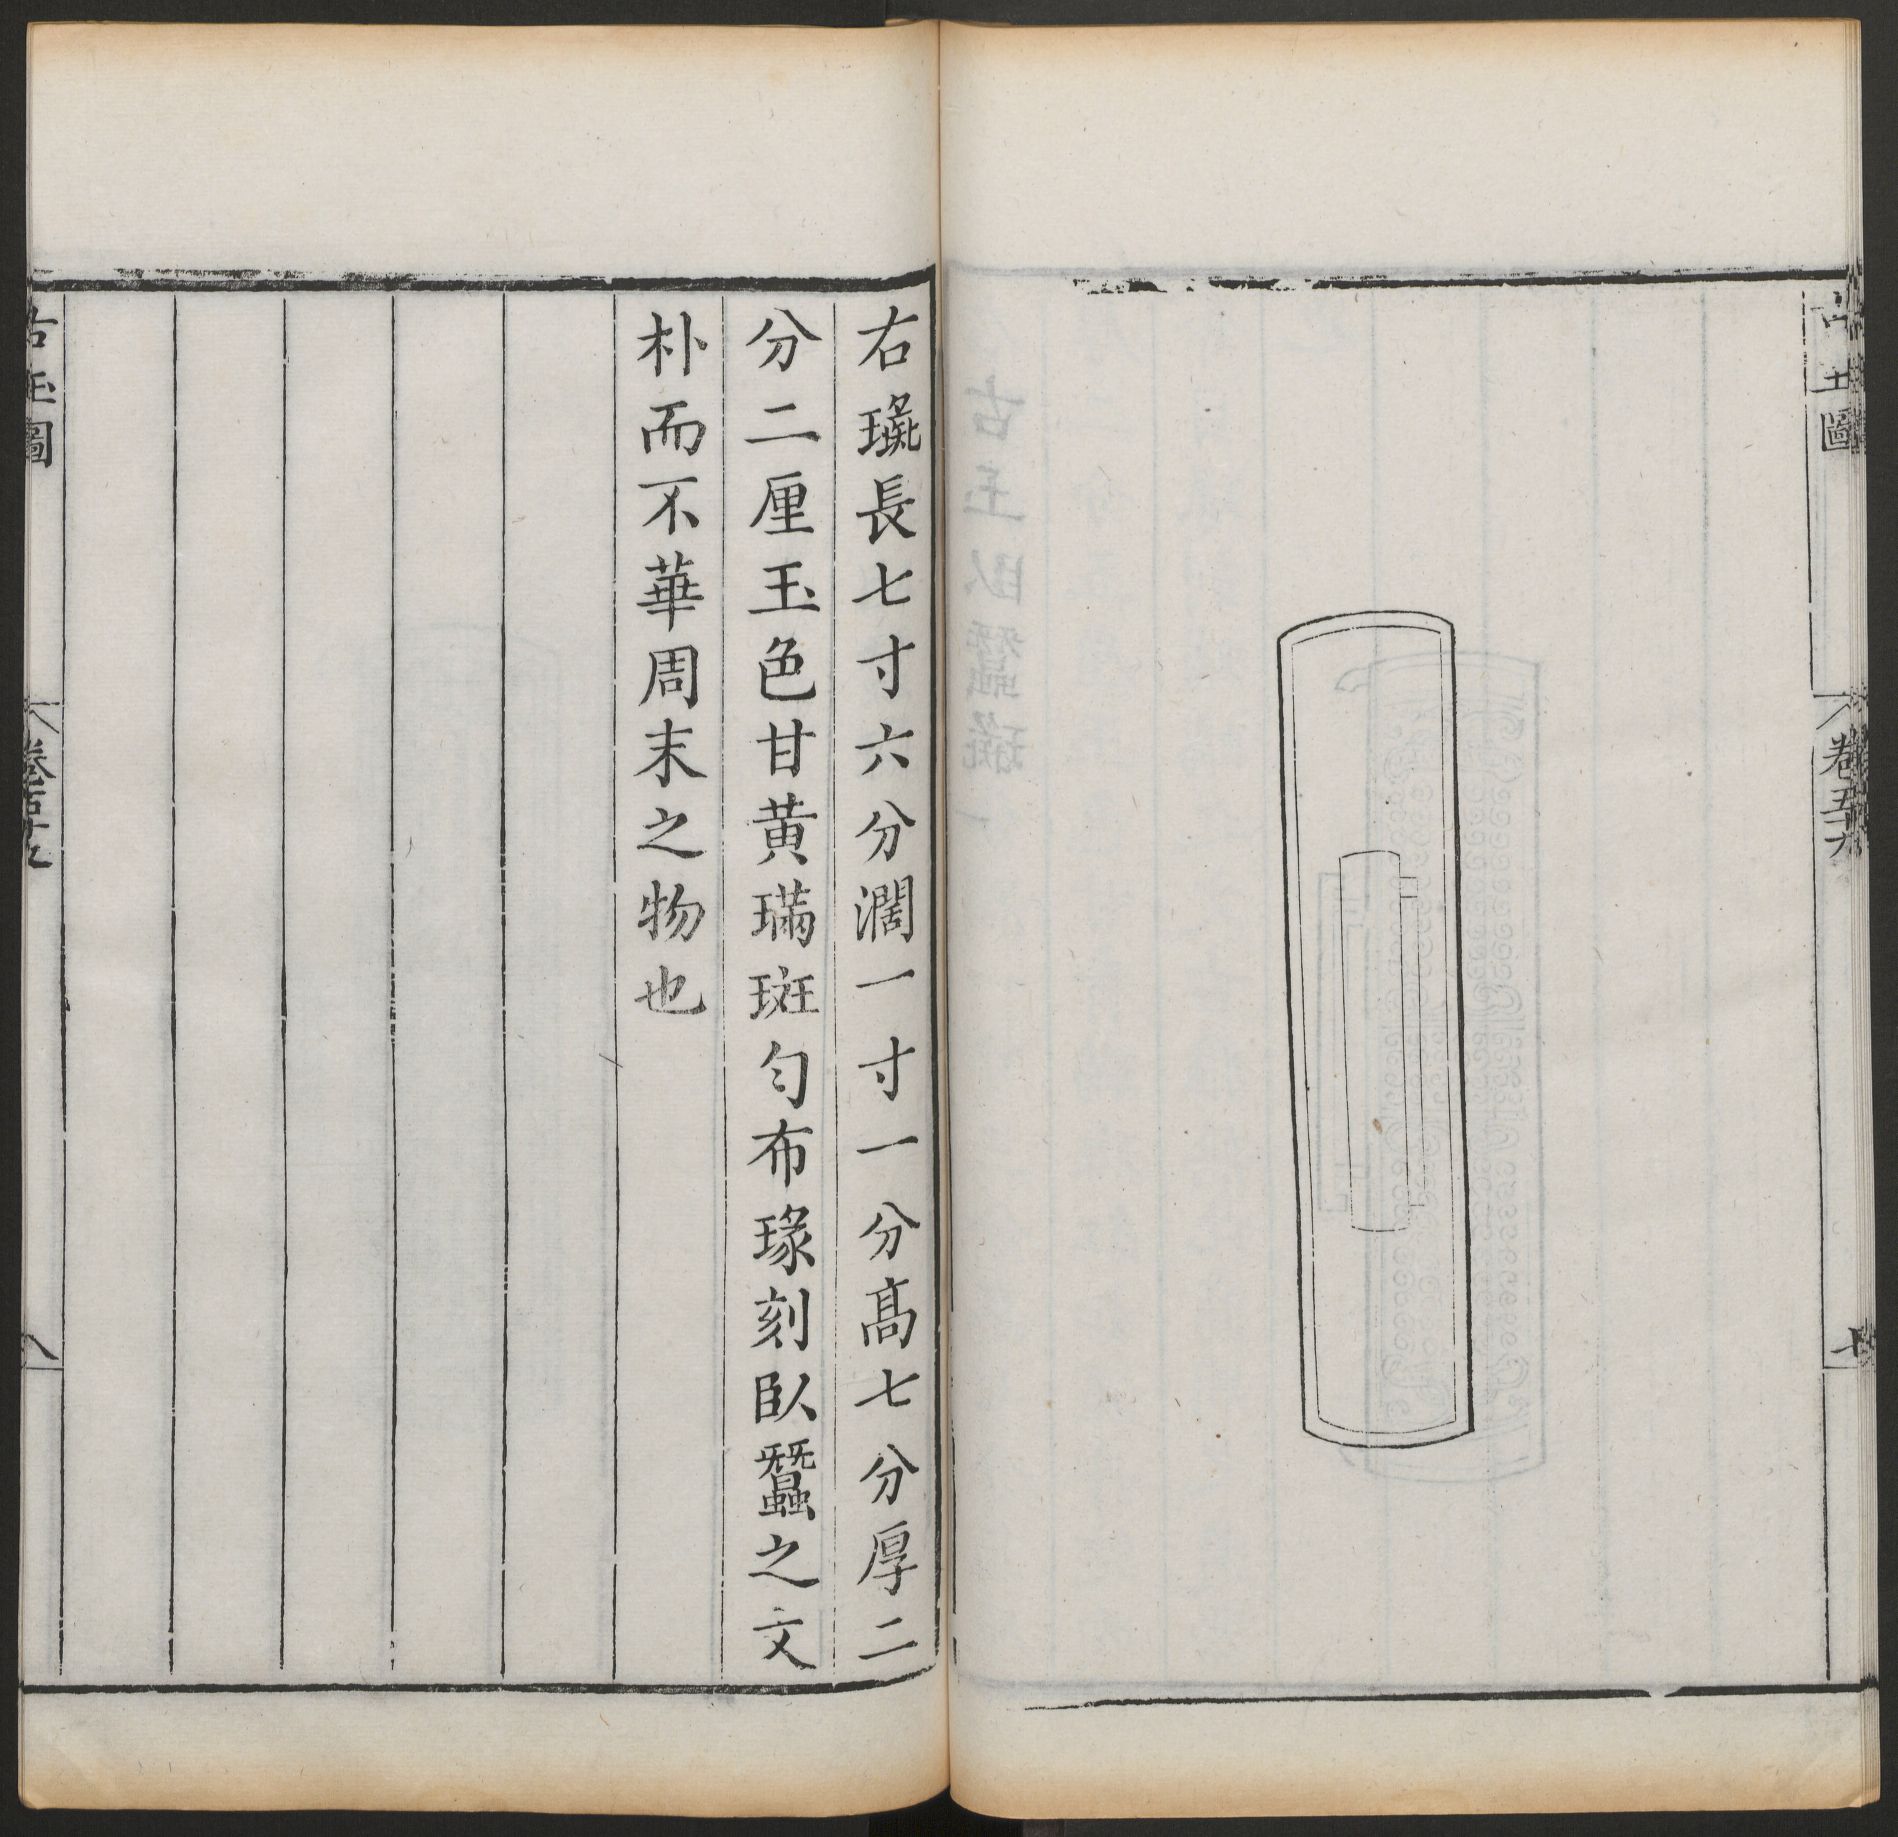 古玉圖
卷五十九
七
右璏長七寸六分濶一寸一分高七分厚二
分二厘玉色甘黄璊斑勻布瑑刻臥蠶之文
朴而不華周末之物也
古玉圖
卷五十九
八